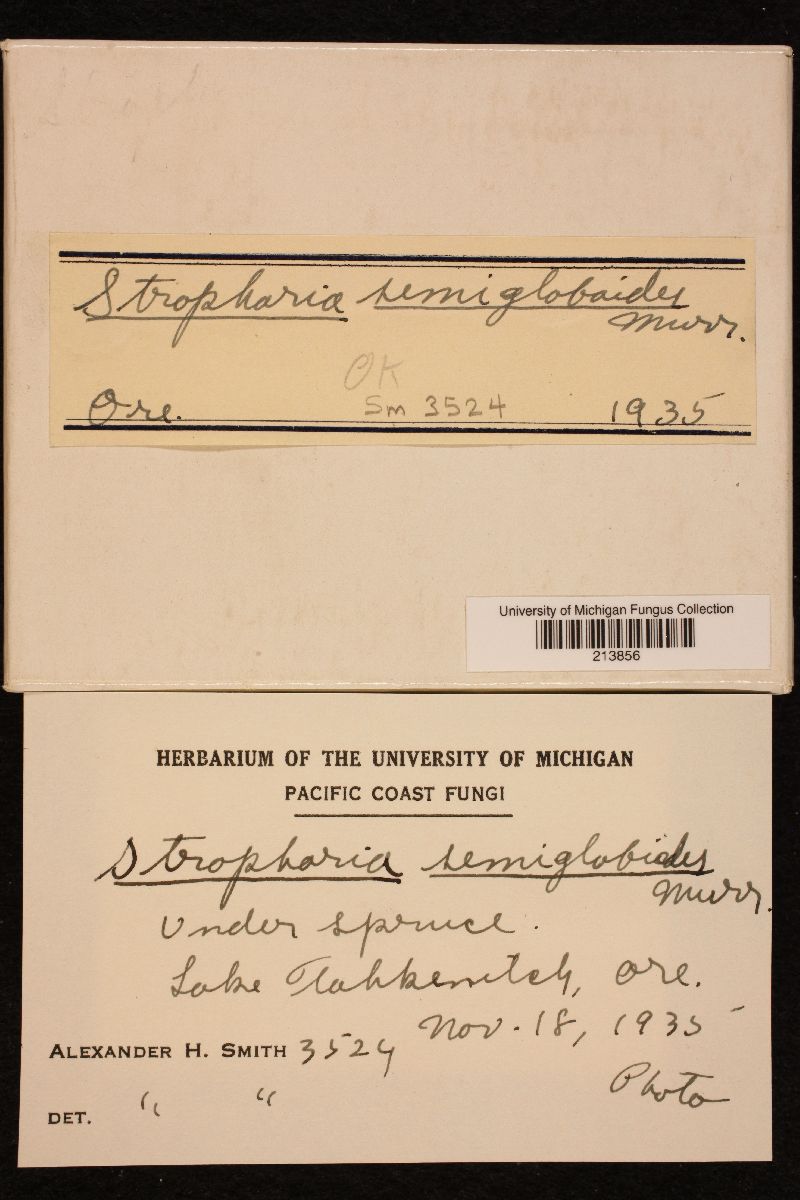 Stropharia semigloboides
Murr.
OK
Ore. Sm 3524 1935
University of Michigan Fungus Collection
213856
HERBARIUM OF THE UNIVERSITY OF MICHIGAN
PACIFIC COAST FUNGI
Stropharia semigloboides
Murr.
Under spruce.
Lake Tahkenitch, Ore.
Nov. 18, 1935
ALEXANDER H. SMITH 3524
Photo
DET. " "